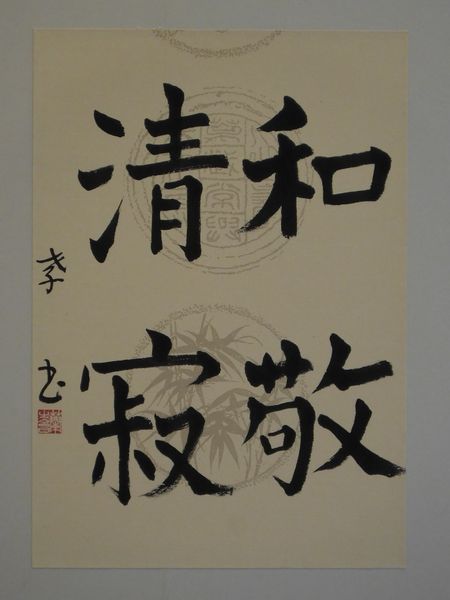 和敬
清寂
孝书